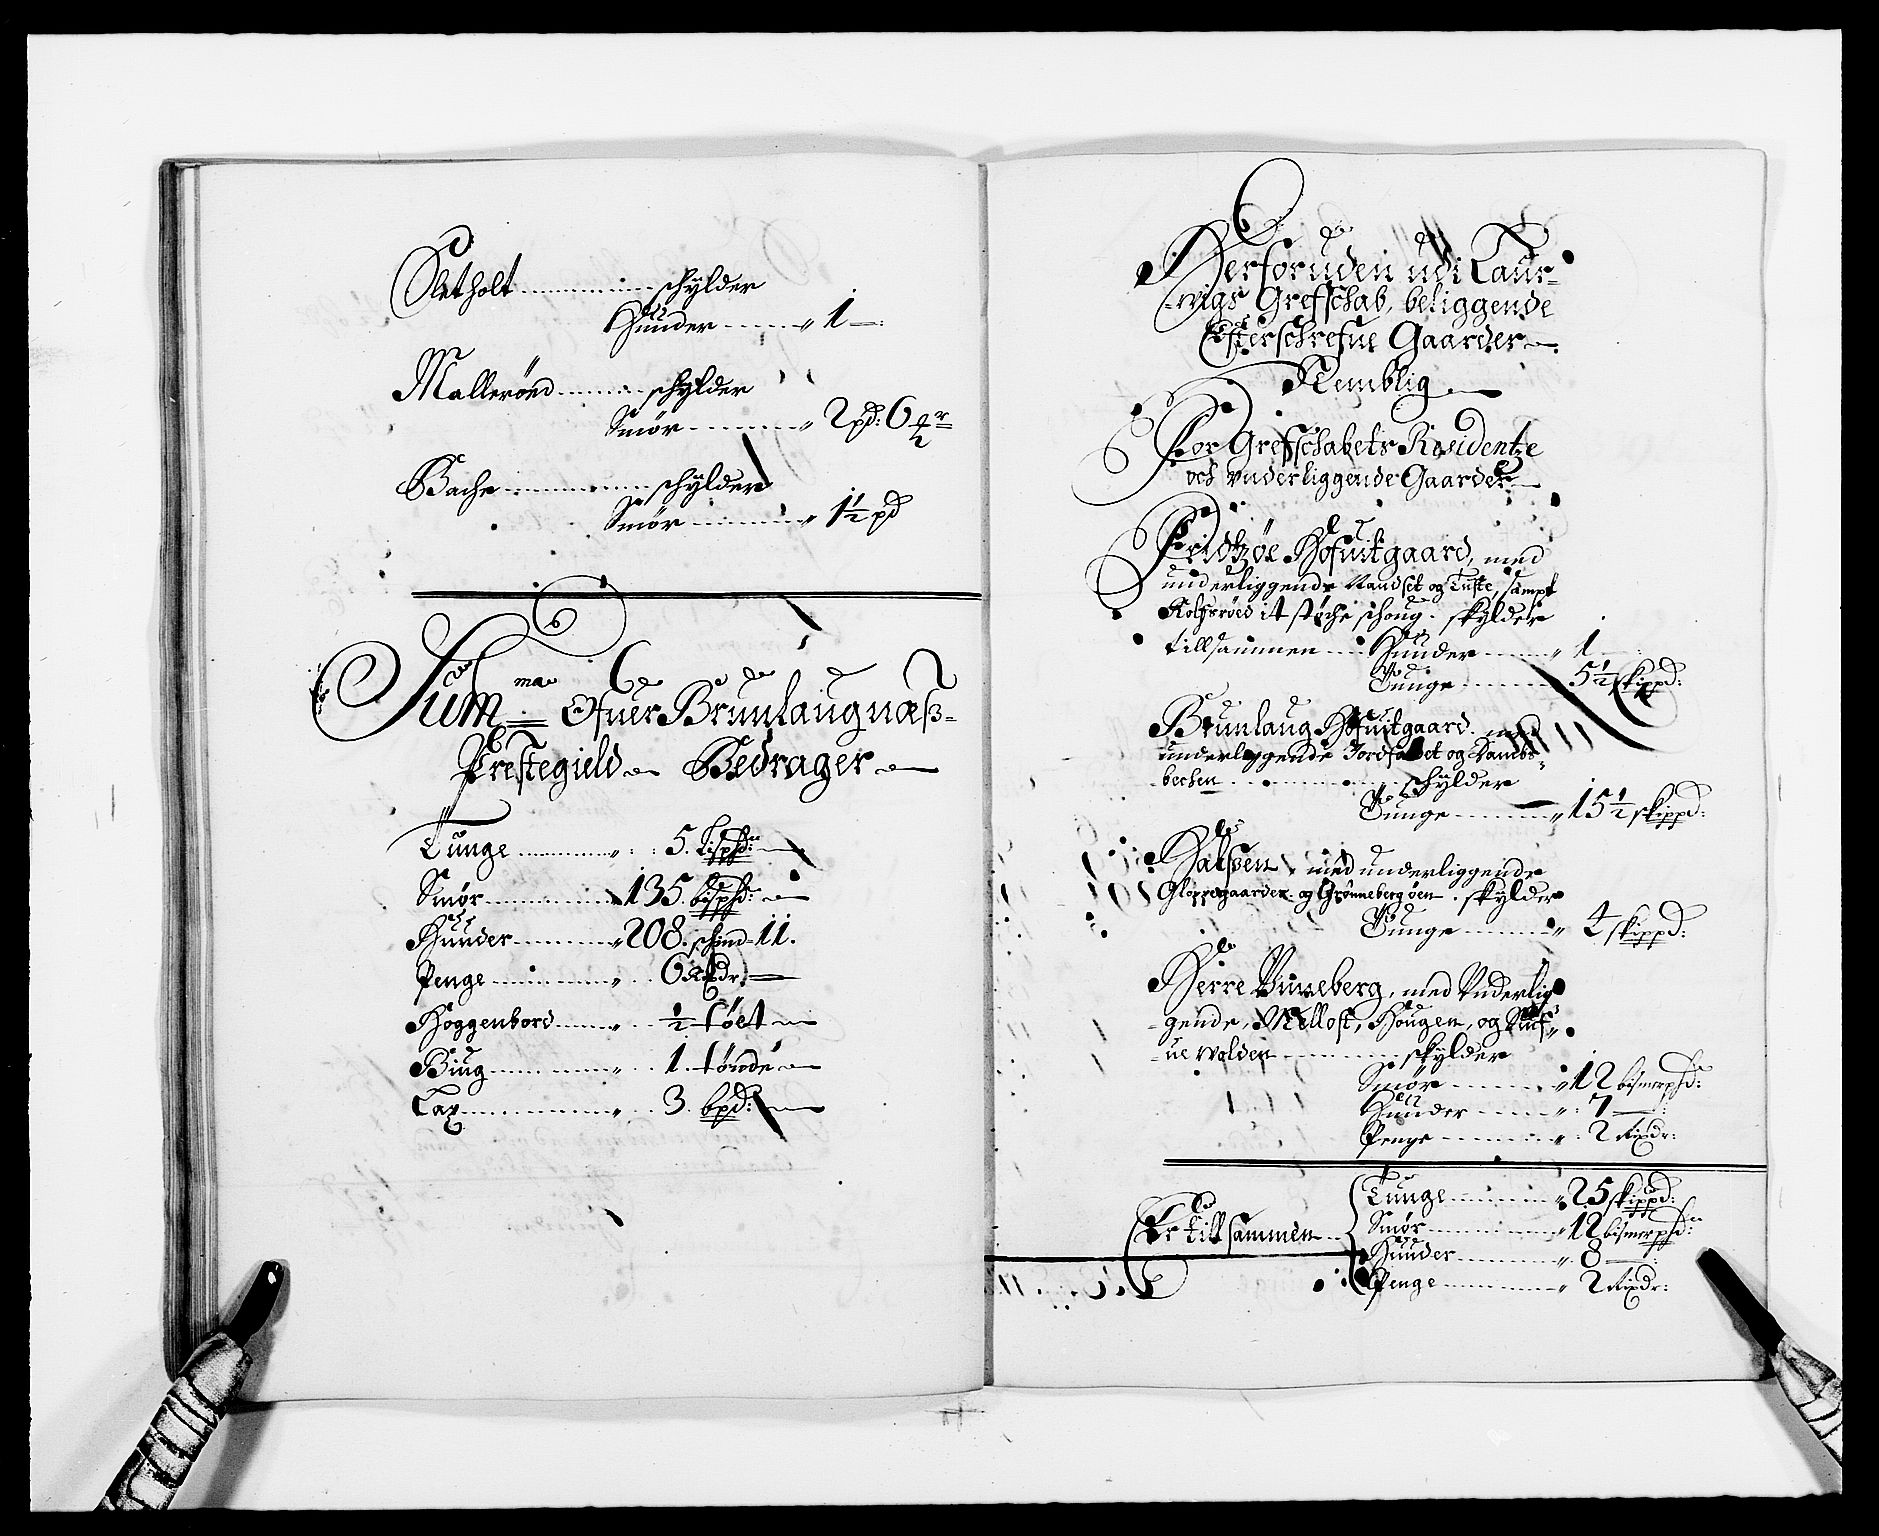 Sletholt ......... schylder
Huuder ...... 1 —:
Malleröed ........ schylder
Smör ........ 2 pd: 6 mr
Bache ........... schÿlder
Smör ......... 1½ pd
Sum ma Ofuer Brunlaugnæß-
Prestegield Bedrager
Tunge ......... 5. Lispd:
Smör ......... 135. bispd:
Huuder ......... 208. schind 11.
Penge ......... 6 Rixdr.
Hoggenbord ...... ½ töet
Biug ......... 1. tönde
Lax ......... 3. bpd:
Herforuden udi Laur-
-wigs Grefschab, beliggende
Efterschrefne Gaarder
Nemblig
For Grefschabets Residentze
och vnderliggende Gaarder
Fridtzöe Hofuitgaard, med
underliggende Vandset og Tufte, sampt
Kolsröed it støche schoug. skylder
tillsammen .... Huuder ...... 1
Tunge ....... 5½ skippd:
Brunlaug Hofuitgaard. med
underliggende Jordfaldet og Dambs-
-bechen ........ schylder
Tunge ........ 15½ skippd:
Halßen, med underliggende
Gloppegaarder. og Grönneberg öen. skylder
Tunge ........ 4 skippd:
Herre Buneberg, med Vnderlig
-gende, Mellost, Hougen, og
-ue wolden ......... skylder
Smör ........ 12 bismerpd:
Huuder ...... 7 —:
Penge ........ 2 Rixdr:
Er till sammen
Tunge ......... 25 skippd:
Smör ......... 12 bismerpd:
Huuder ......... 8 —:
Penge ......... 2 Rixdr: